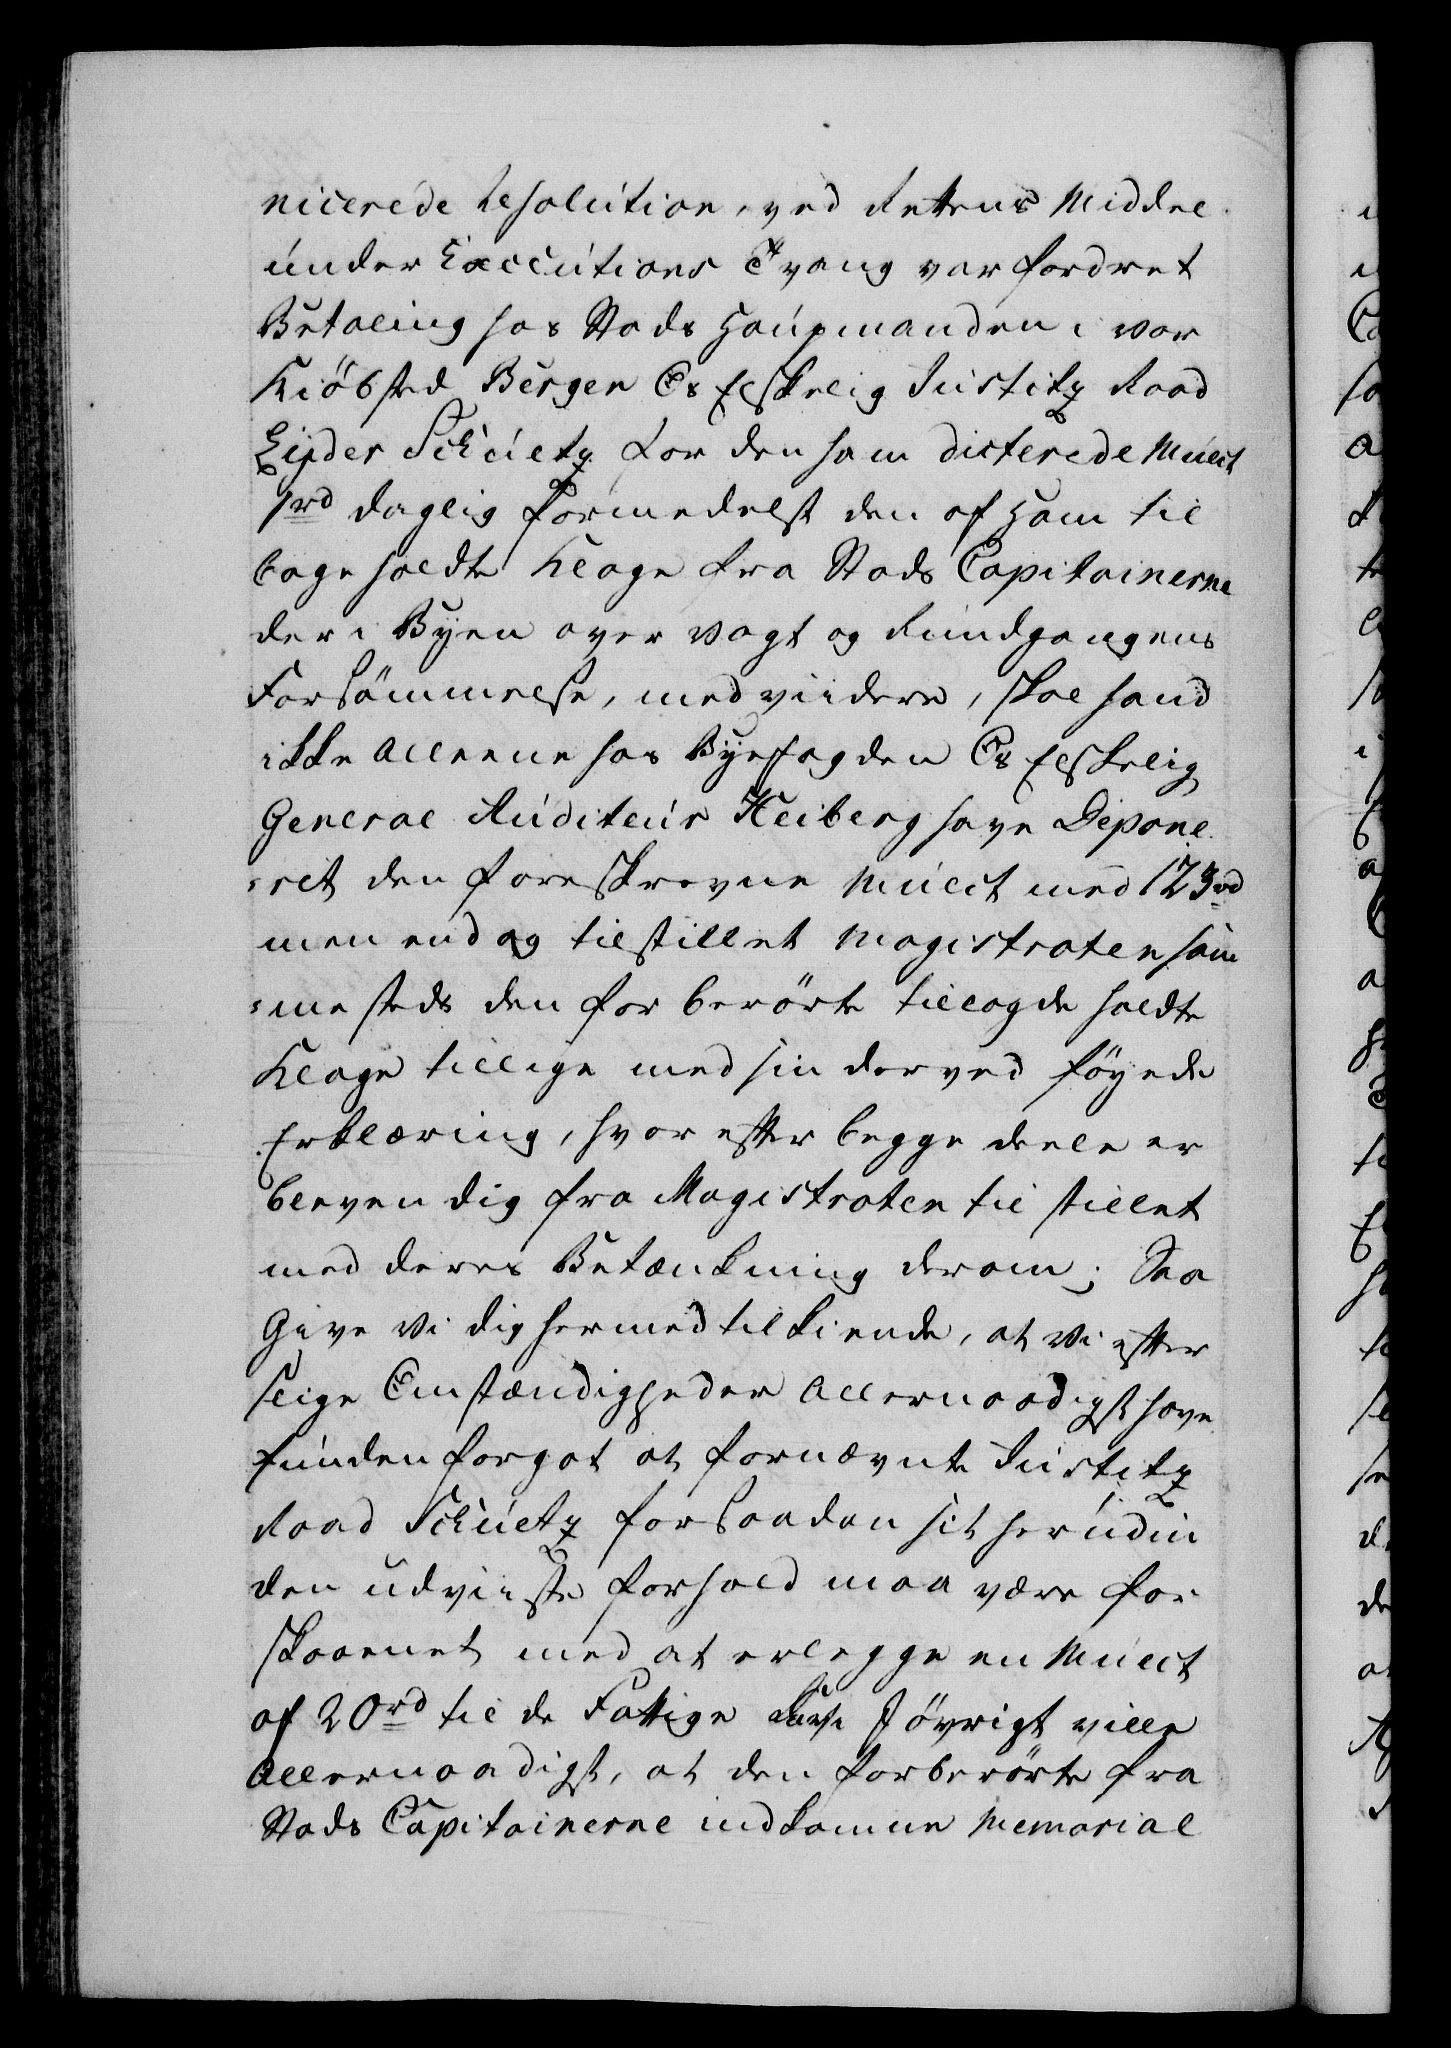 nicerede Resolution, ved Rettens Middel
under Executions Tvang var fordret
Betaling hos Stads Haupmanden i vor
Kiöbsted Bergen Os Elskelig Justitz Raad
Eijder Schuetz for den ham dicterede Mulct
1 rd daglig formedelst den af ham til
bage holdte Klage fra Stads Capitainerne
der i Byen over Vagt og Rundgangens
Forsömmelse, med viidere, skal hand
ikke alleene hos Byefogden Os Elskelig
General Auditeur Heiberg have Depone
ret den foreskrevne Mulct med 123 rd
men endog tilstillet Magistraten sam
me steds den for berörte tilbage holdte
Klage tillige med sin derved föyede
Erklæring, hvor efter begge deele er
bleven dig fra Magistraten til stillet
med deres Betænkning derom; Saa
Give Vi dig hermed tilkiende, at Vi efter
slige Omstændigheder allernaadigst have
funden for got at fornævnte Justitz
Raad Schuetz for saadan sit herudin
den udviiste forhold maa være for
skaanet med at erlegge en Mulct
af 20 rd til de Fattige I övrigt ville
allernaadigst, at den forberörte fra
Stads Capitainerne indkomne Memorial